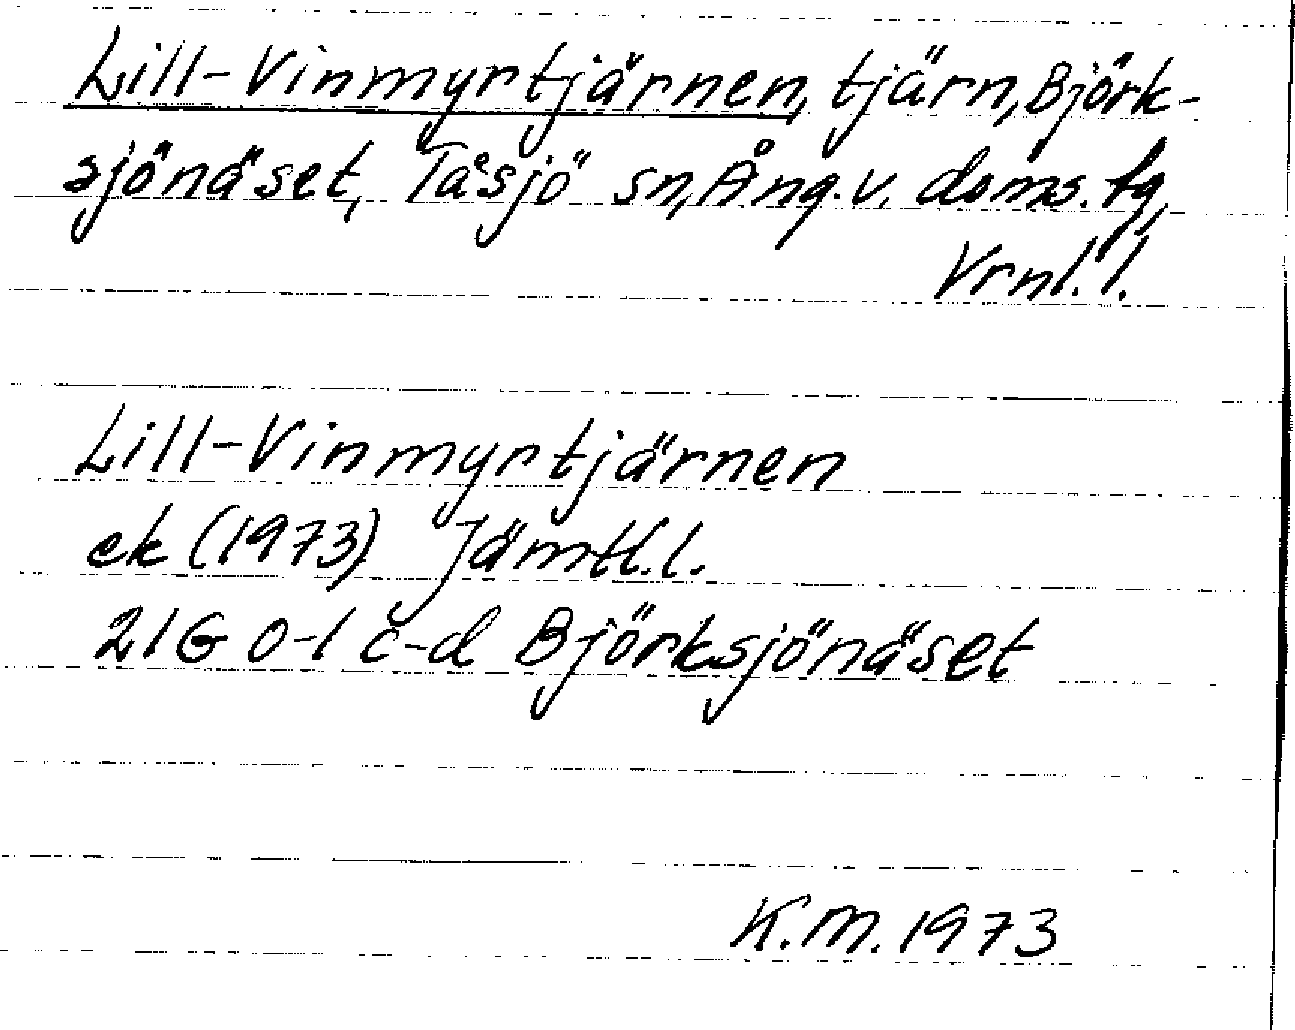 Lill-Vinmyrtjärnen, tjärn, Björk-
sjönäset, Tåsjö sn, Ång. v. doms. tg,
Vrnl. l.
Lill-Vinmyrtjärnen
ek (1973) Jämtl. l.
21G 0-1 c-d Björksjönäset
K.M. 1973